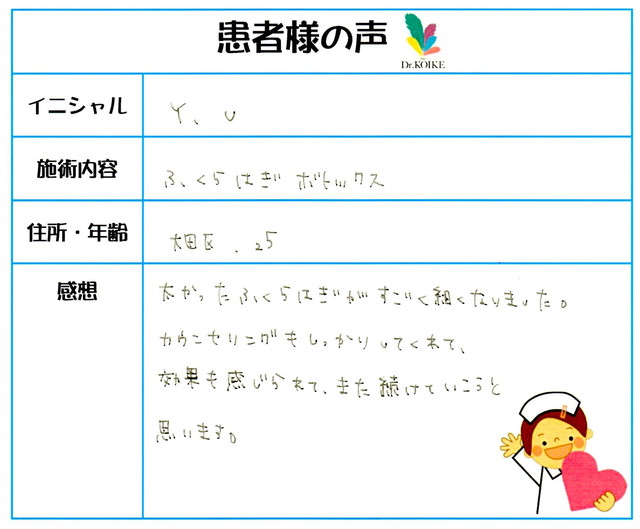 患者様の声
Dr.KOIKE
イニシャル
Y、U
施術内容
ふくらはぎ ボトックス
住所・年齢
大田区、25
感想
太かったふくらはぎがすごく細くなりました。
カウンセリングもしっかりしてくれて、
効果も感じられて、また続けていこうと
思います。